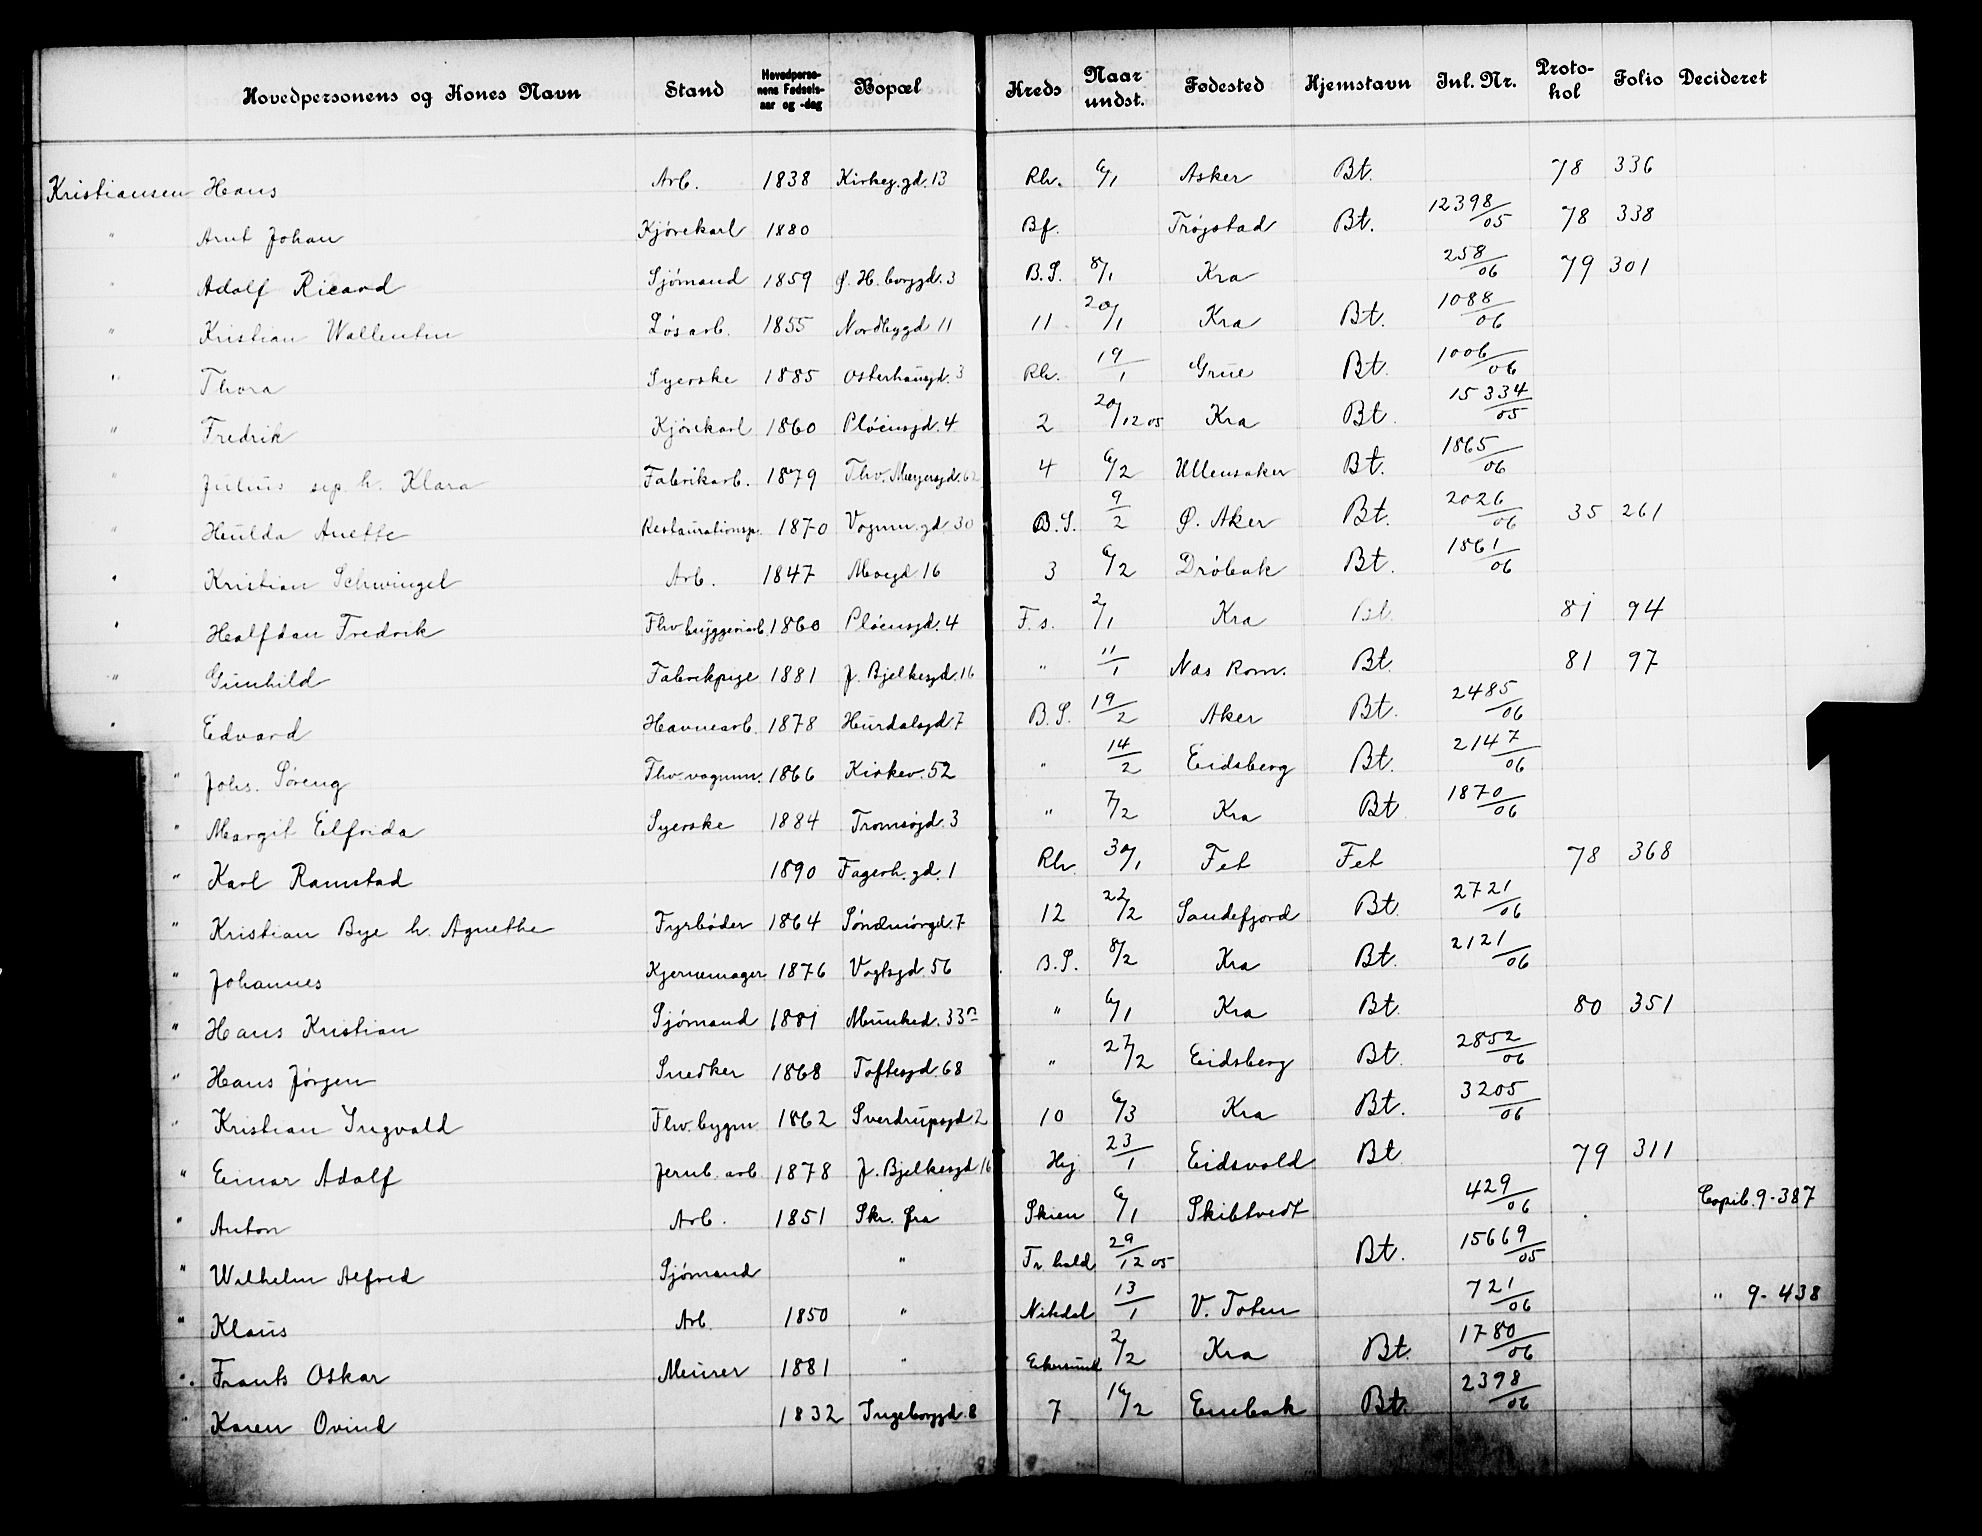 Hovedpersonens og Kones Navn Stand Hovedperso-nens Fødsels-aar og -dag Bopæl Kreds Naar undst. Fødested Hjemstavn Inl. Nr. Proto-kol Folio Decideret
Kristiansen Hans Arb. 1838 Kirkeg.gd. 13 Rh. 6/1 Asker Bt. 78 336
" Arnt Johan Kjørekarl 1880 Bf. Trøgstad Bt. 12398/05 78 338
" Adolf Ricard Sjømand 1859 Ø. H. borggd. 3 B.S. 8/1 Kra 258/06 79 301
" Kristian Wallentin Løsarb. 1855 Nordbygd 11 11 20/1 Kra Bt. 1088/06
" Thora Syerske 1885 Osterhausgd. 3 Rh. 19/1 Grue Bt. 1006/06
" Fredrik Kjørekarl 1860 Pløensgd. 4 2 20/12 05 Kra Bt. 15334/05
" Julius sep. h. Klara Fabrikarb. 1879 Thv. Meyersgd. 62 4 6/2 Ullensaker Bt. 1865/06
" Hulda Anette Restaurationsp. 1870 Vognm.gd. 30 B.S. 9/2 Ø. Aker Bt. 2026/06 35 261
" Kristian Schwingel Arb. 1847 Moegd 16 3 6/2 Drøbak Bt. 1861/06
" Halfdan Fredrik Fhv bryggeriarb. 1860 Pløensgd. 4 F.s. 2/1 Kra Bt. 81 94
" Gunhild Fabrikpige 1881 J. Bjelkesgd. 16 " 11/1 Næs Rom. Bt. 81 97
" Edvard Havnearb. 1878 Hurdalsgd 7 B.S. 19/2 Aker Bt. 2485/06
" Johs. Søreng Fhv. vognm. 1866 Kirkev. 52 " 14/2 Eidsberg Bt. 2147/06
" Margit Elfrida Syerske 1884 Tromsøgd. 3 " 7/2 Kra Bt 1870/06
" Karl Ramstad 1890 Fagerh. gd. 1 Rh. 30/1 Fet Fet 78 368
" Kristian Bye h. Agnethe Fyrbøder 1864 Søndmørgd. 7 12 22/2 Sandefjord Bt. 2721/06
" Johannes Kjernemager 1876 Vogtsgd. 56 B.S. 8/2 Kra Bt. 2121/06
" Hans Kristian Sjømand 1881 Munked. 33 " 6/1 Kra Bt. 80 351
" Hans Jørgen Snedker 1868 Toftesgd. 68 " 27/2 Eidsberg Bt. 2852/06
" Kristian Ingvald Fhv. bygm. 1862 Sverdrupsgd. 2 10 6/3 Kra Bt. 3205/06
" Einar Adolf Jernb. arb. 1878 J. Bjelkesgd 16 Hej. 23/1 Eidsvold Bt. 79 311
" Anton Arb. 1851 Skr. fra Skien 6/1 Skibtvedt 429/06 Copib. 9-387
" Wilhelm Alfred Sjømand " Fr. hald 29/12 05 Bt. 15669/05
" Klaus Arb. 1850 " Nitedal 13/1 V. Toten 721/06 " 9-438
" Frants Oskar Murer 1881 " Ekersund 2/2 Kra Bt. 1780/06
" Karen Ovind 1832 Ingeborggd. 8 7 16/2 Enebak Bt. 2398/06